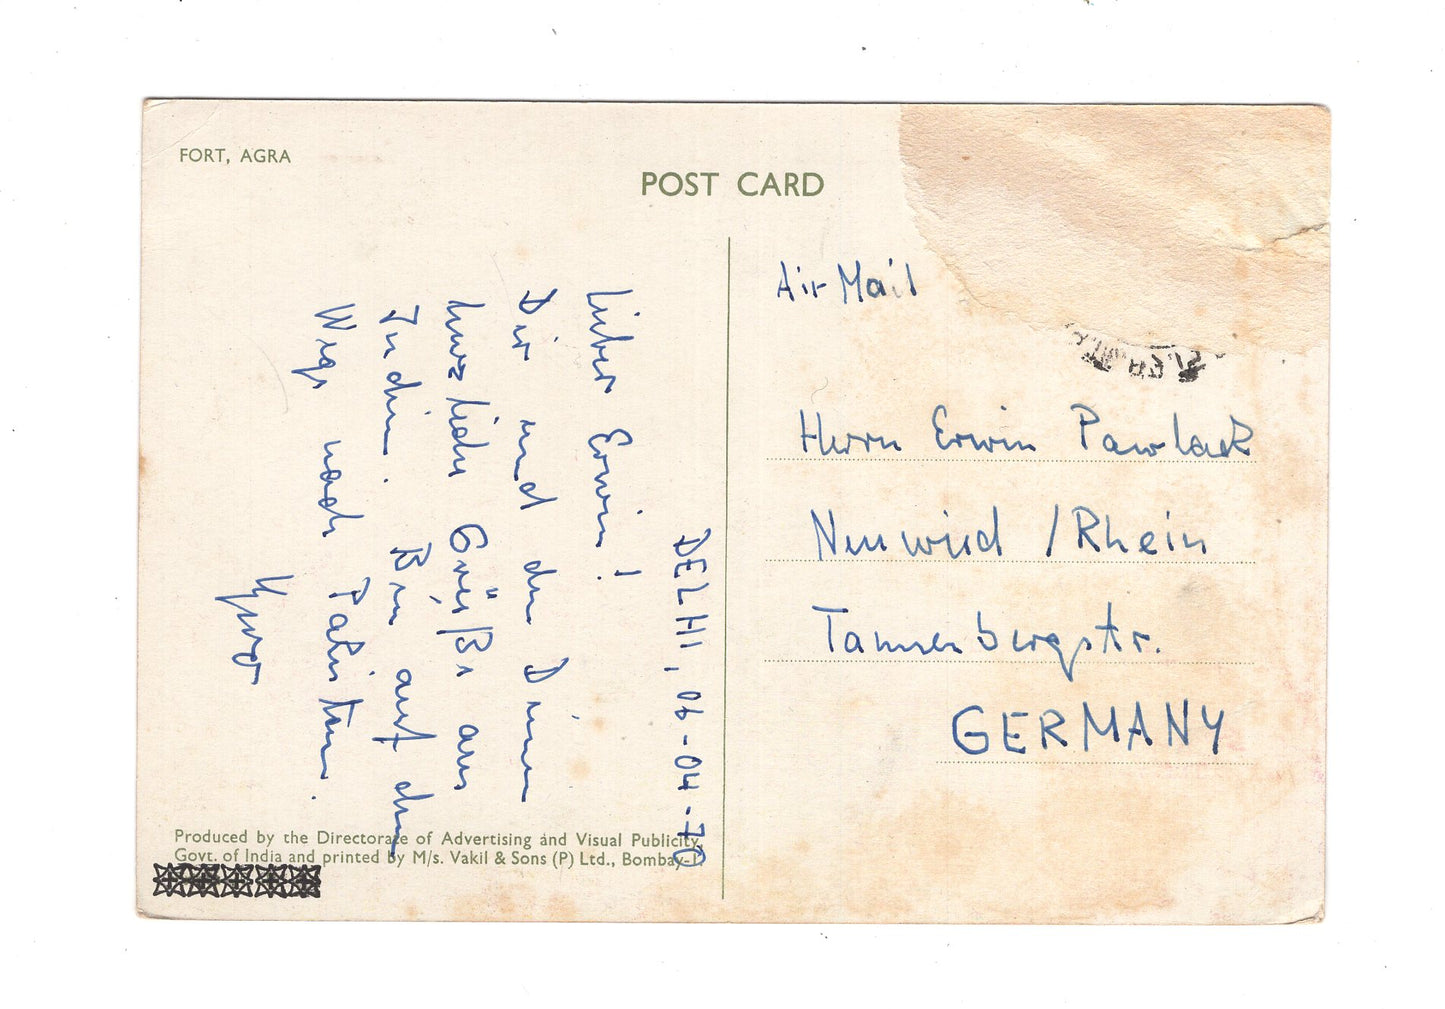 FORT, AGRA
POST CARD
DELHI, 06-04-70
Lieber Erwin!
Dir und den Deinen
herzliche Grüße aus
Indien. Bin auf dem
Wege nach Pakistan.
Air Mail
Herrn Erwin Pawlack
Neuwied / Rhein
Tannenbergstr.
GERMANY
Produced by the Directorate of Advertising and Visual Publicity,
Govt. of India and printed by M/s. Vakil & Sons (P) Ltd., Bombay-1